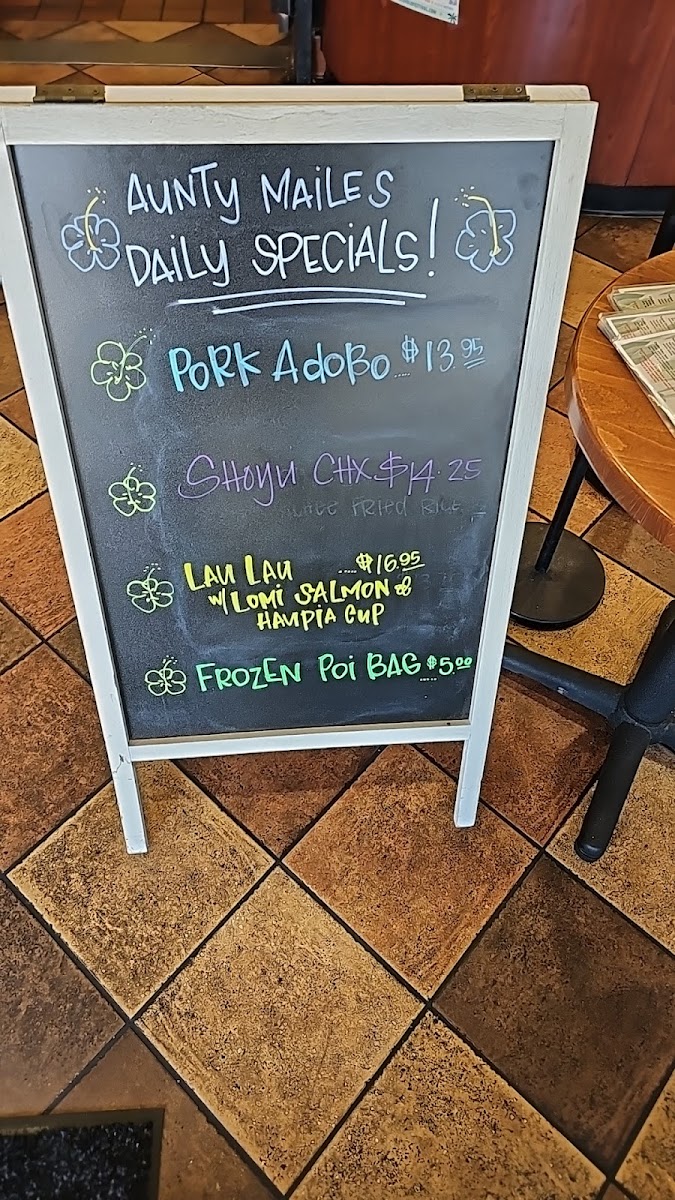 AUNTY MAILES
DAILY SPECIALS!
PORK ADOBO $13.95
SHOYU CHX $14.25
FRIED RICE
LAU LAU ....$16.95
W/ LOMI SALMON &
HAUPIA CUP
FROZEN POI BAG $5.00